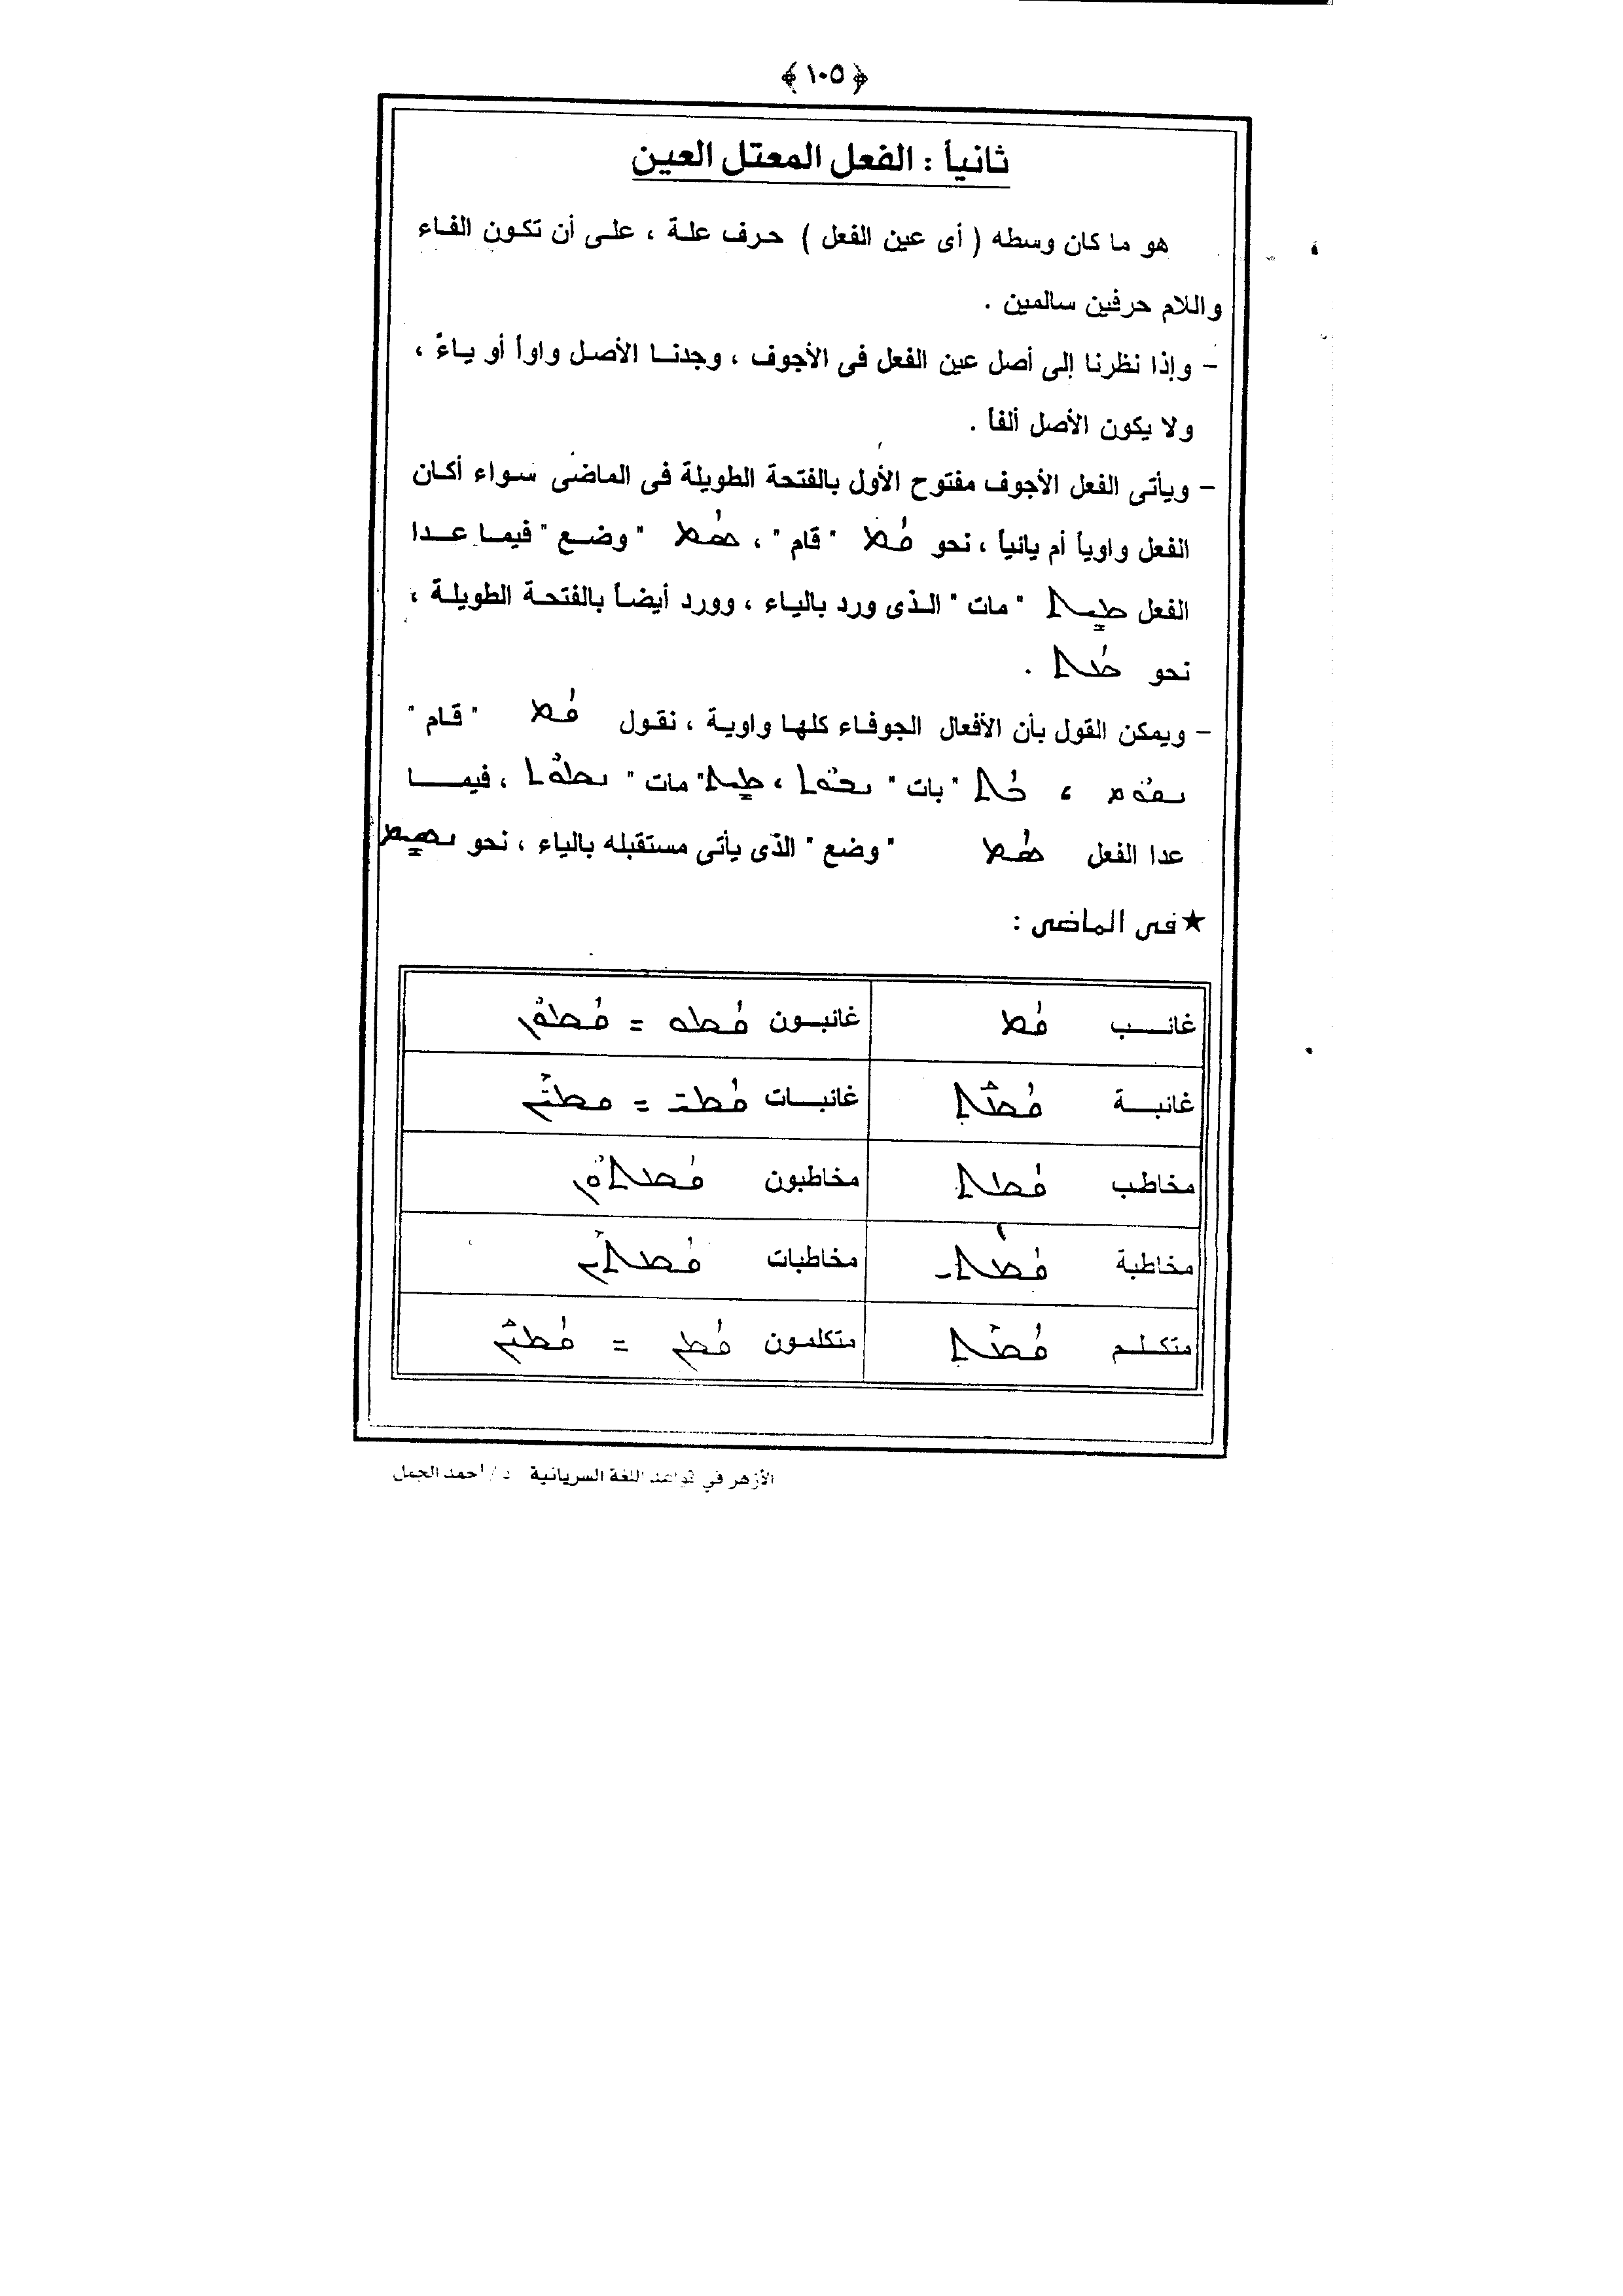 ﴿ ١٠٥ ﴾
ثانياً : الفعل المعتل العين
هو ما كان وسطه ( أى عين الفعل ) حرف علة ، على أن تكون الفاء
واللام حرفين سالمين .
– وإذا نظرنا إلى أصل عين الفعل فى الأجوف ، وجدنا الأصل واواً أو ياءً ،
ولا يكون الأصل ألفاً .
– ويأتى الفعل الأجوف مفتوح الأول بالفتحة الطويلة فى الماضى سواء أكان
الفعل واوياً أم يائياً ، نحو ܩܳܡ " قام " ، ܣܳܡ " وضع " فيما عدا
الفعل ܡܝܼܬ " مات " الذى ورد بالياء ، وورد أيضاً بالفتحة الطويلة ،
نحو ܡܳܬ .
– ويمكن القول بأن الأفعال الجوفاء كلها واوية ، نقول ܩܳܡ " قام "
ܢܩܘܼܡ ، ܒܳܬ " بات " ܢܒܘܼܬ ، ܡܝܼܬ " مات " ܢܡܘܼܬ ، فيما
عدا الفعل ܣܳܡ " وضع " الذى يأتى مستقبله بالياء ، نحو ܢܣܝܼܡ
★ فى الماضى :
غائب ܩܳܡ غائبون ܩܳܡܘ = ܩܳܡܘܼܢ
غائبة ܩܳܡܰܬ غائبات ܩܳܡ̈ܝ = ܩܡܶܝܢ
مخاطب ܩܳܡܬ مخاطبون ܩܳܡܬܘܼܢ
مخاطبة ܩܳܡܬܝ مخاطبات ܩܳܡܬܶܝܢ
متكلم ܩܳܡܶܬ متكلمون ܩܳܡܢ = ܩܳܡܢܰܢ
الأزهر في قواعد اللغة السريانية د/ أحمد الجمل